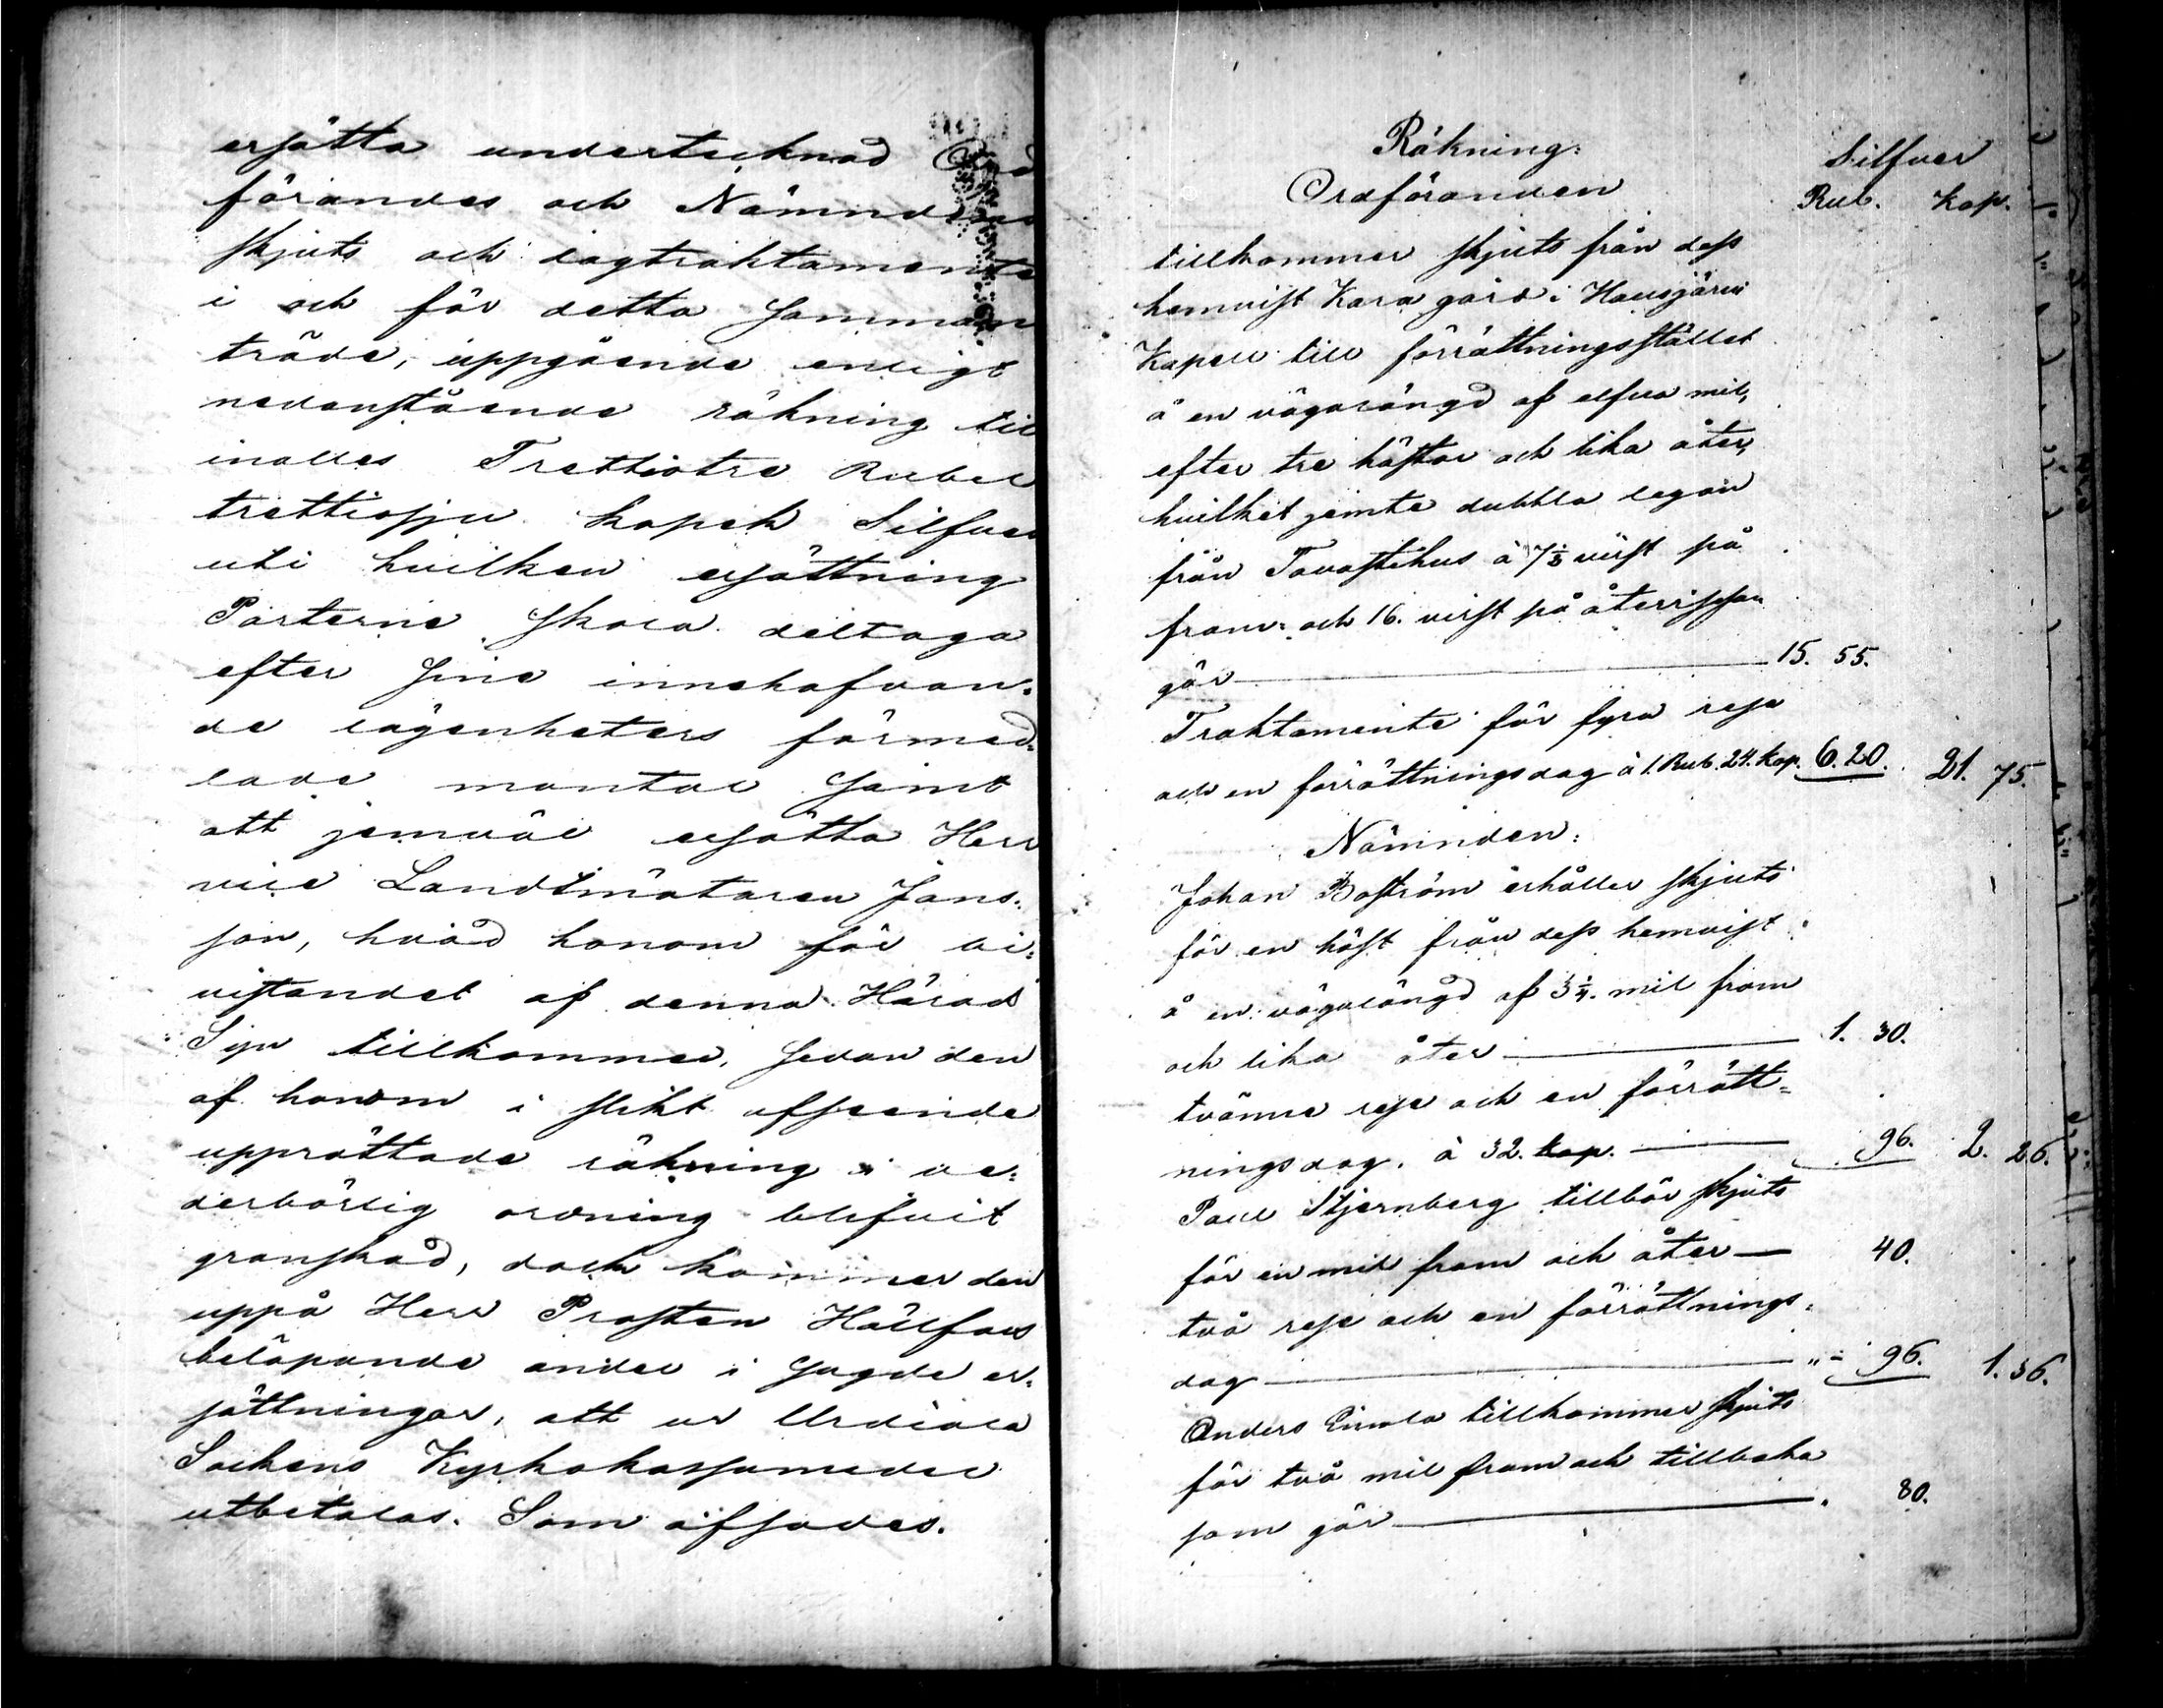 ersätta undertecknad Ord
förandes och Nämndens
skjuts och lagtraktamente
i och för detta Samman
träde, uppgående enligt
nedanstående räkning till
inalles Trettiotre Rubel
trettiosju kopek Silfver
uti hvilken ersättning
Parterne skola deltaga
efter sine innehafvan-
de lägenheters förmed-
lade mantal samt
att jemväl ersätta Herr
vice Landtmätaren Jans-
son, hvad honom för bi-
vistandet af denna Härads
Syn tillkommer, sedan den
af honom i slikt afseende
upprättade räkning i ve-
derbörlig ordning blifvit
granskad, dock kommer den
uppå Herr Prosten Hällfors
belöpande andel i sagde er-
sättningar, att ur Urdiala
Sockens Kyrkokassamedel
utbetalas. Som afsades.
Räkning:
Silfver
Ordföranden
Rub. Kop.
tillkommer skjuts från dess
hemvist Kara gård i Hausjärvi
Kapell till förrättningsstället
å en vägalängd af elfva mil,
efter tre hästar och lika åter,
hvilket jemte dubbla legan
från Tavastehus à 7 1/2 virst på
fram- och 16. virst på återresan
gör 15. 55.
Traktamente för fyra rese
och en förrättningsdag à 1. Rub. 24. Kop. 6. 20. 21. 75.
Nämnden:
Johan Boström erhåller skjuts
för en häst från dess hemvist
å en vägalängd af 3 1/4. mil fram
och lika åter 1. 30.
tvänne rese och en förrätt-
ningsdag. à 32. kop. 96. 2. 26.
Paul Stjernberg tillbör skjuts
för en mil fram och åter 40.
två rese och en förrättnings-
dag " 96. 1. 36.
Anders tillkommer skjuts
för två mil fram och tillbaka
som gör 80.